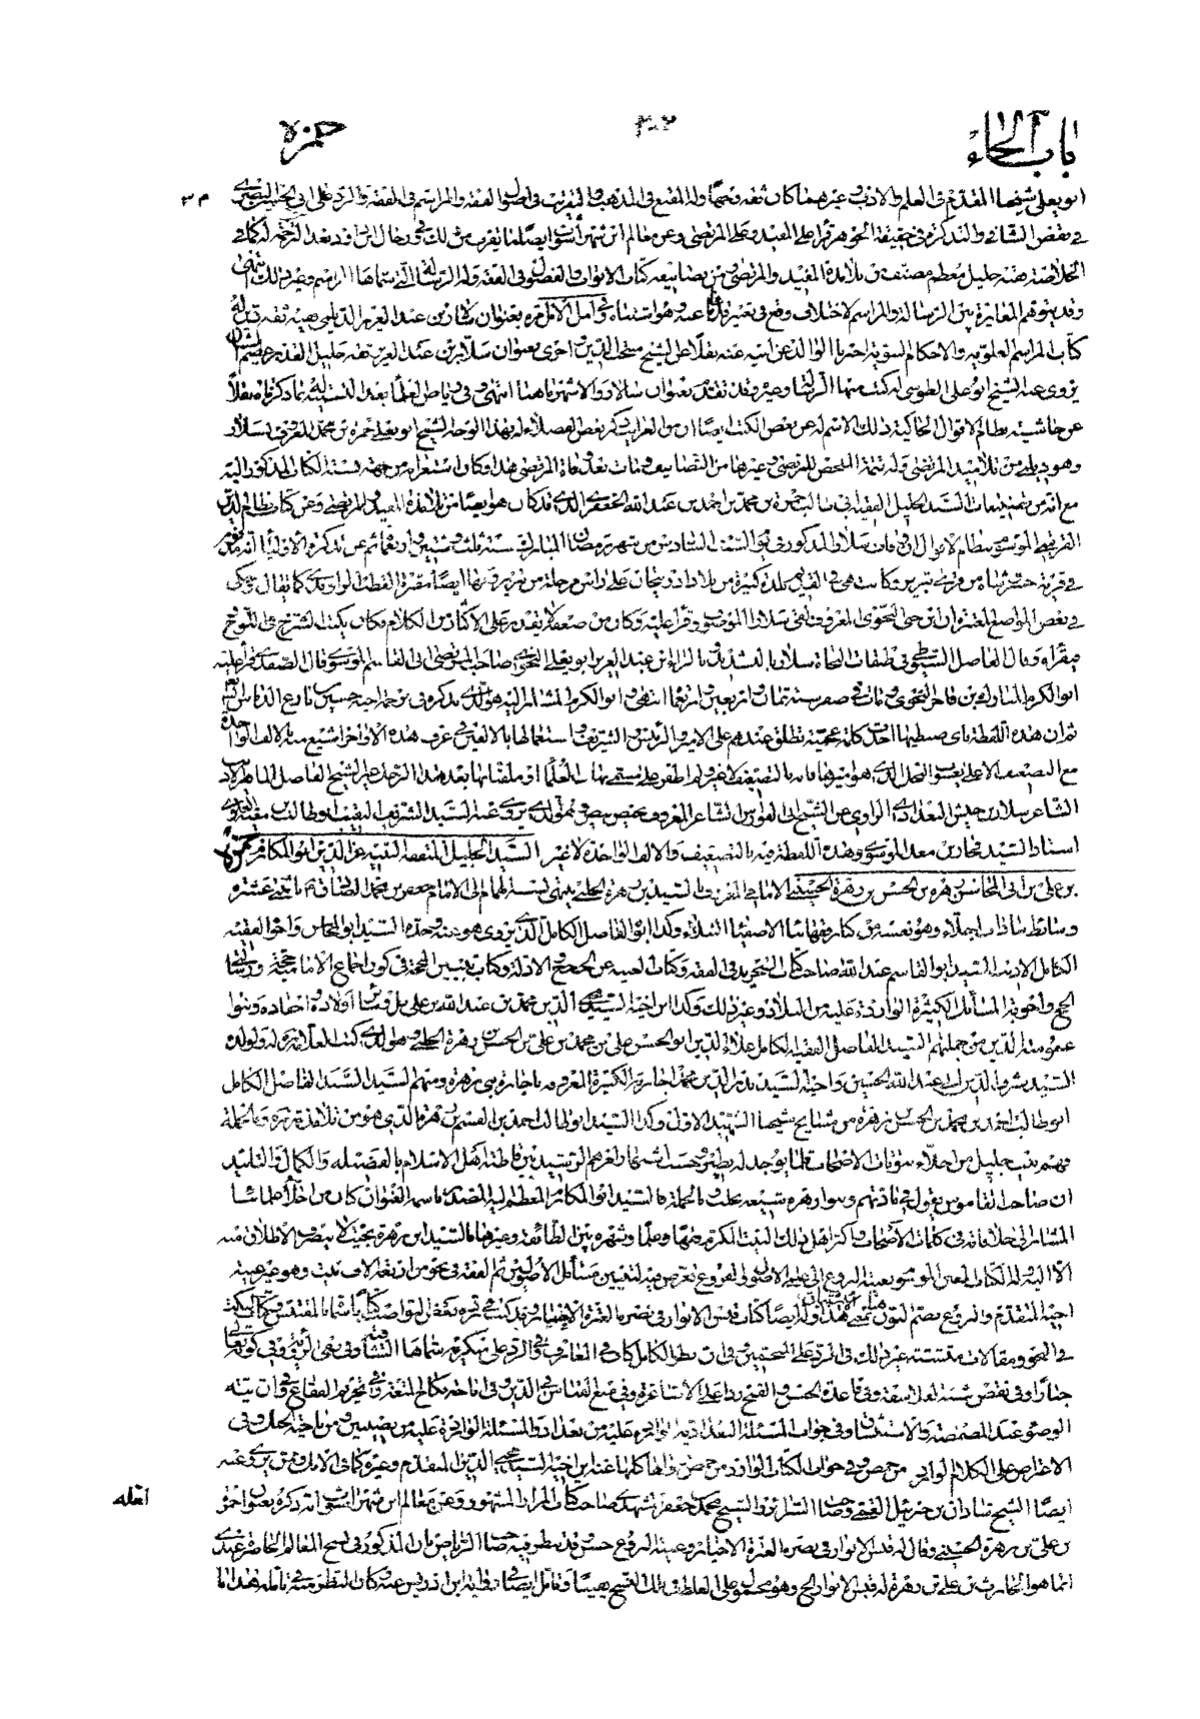 باب الحاء ٢٠٢ حمزه
ابو يعلى شيخنا المقدم فى العلم والادب وغيرهما كان ثقة وجها وله المقنع فى المذهب والتقريب فى اصول الفقه والمراسم فى الفقه والرد على ابى الحسن البصرى
فى نقض الشافى والتذكرة فى حقيقة الجوهر قرا على المفيد وعلى المرتضى وعن معالم ابن شهر اشوب ايضا ما يقرب من ذلك وفى رجال ابن داود بعد الترجمة له كما فى
الخلاصة فقيه جليل معظم مصنف من تلامذة المفيد والمرتضى ومن تصانيفه كتاب الابواب والفصول فى الفقه وله الرسالة التى سماها المراسم وغير ذلك انتهى
وقد يتوهم المغايرة بين الرسالة والمراسم لاختلاف وقع فى تعبير وهو اشتباه وفى امل الامل مرة بعنوان سلار بن عبد العزيز الديلمى فقيه ثقة عين له
كتاب المراسم العلوية والاحكام النبوية اخبرنا الوالد عن ابيه عنه نقلا عن الشيخ منتجب الدين واخرى بعنوان سلار بن عبد العزيز ثقة جليل القدر عظيم الشان
يروى عنه الشيخ ابو على الطوسى له كتب منها الرسالة وغيره وقد تقدم بعنوان سالار والاشهر ما هنا انتهى وفى رياض العلماء بعد التسمية بما ذكرناه نقلا
عن حاشية نظام الاقوال الحاكية ذلك الاسم له عن بعض الكتب ايضا ان من الغرائب ذكر بعض الفضلاء له بهذا الوجه الشيخ ابو يعلى حمزة بن محمد المعروف بسلار
وهو ديلمى من تلاميذ المرتضى وله تتمة الملخص للمرتضى وغيرها من التصانيف ومات بعد وفاة المرتضى هذا وكان استغرابه من جهة نسبة الكتاب المذكور اليه
مع انه من تصنيفات السيد الجليل الفقيه ابى طالب حمزة بن محمد بن احمد بن عبد الله الجعفرى الذى قد كان هو ايضا من تلامذة المفيد والمرتضى وعن كتاب نظام الدين
القرشى الموسوم بنظام الاقوال ان وفات سلار المذكور فى يوم السبت السادس من شهر رمضان المبارك سنة ثلث وستين واربعمائة وعن تذكرة الاولياء انه مدفون
فى قرية خسروشاه من قرى تبريز وكانت هى فى القديم بلدة كبيرة من بلاد اذربيجان على راس مرحلة من تبريز وفيها ايضا مقبرة القطب الراوندى كما يقال وحكى
فى بعض المواضع المعتبرة ان ابن جنى النحوى المعروف لقى سلار الموصوف وقرا عليه وكان من ضعفه لا يقدر على الاكثار من الكلام فكان يكتب الشرح فى اللوح
فيقراه وقال الفاضل السيوطى فى طبقات النحاة سلار بالتشديد وبالراء بن عبد العزيز ابو يعلى النحوى صاحب المرتضى ابى القاسم الموسوى قال الصفدى قرا عليه
ابو الكرم المبارك بن فاخر النحوى ومات فى صفر سنة ثمان واربعين واربعمائة انتهى وابو الكرم المشار اليه هو الذى يذكره فى ترجمة حسين بارع الدباس
ثم ان هذه اللفظة باى ضبطيها اخذت كانها عجمية تطلق عندهم على الامير والرئيس والشريف واستعمالها بالالفين فى عرف هذه الاواخر اشيع منه بالالف الواحدة
مع التضعيف الا على يعسوب النحل الذى هو اميرها فانه بالتضعيف لا غير
الشاعر سلار بن حبيش البغدادى الراوى عن الشيخ ابى الفوارس الشاعر المعروف بحيص بيص وهو الذى يروى عنه السيد الشريف النقيب ابو طالب
استاد السيد فخار بن معد الموسوى وهذه اللفظة فيه بالتضعيف والالف الواحدة لا غير السيد الجليل المتفقه النبيه عز الدين ابو المكارم حمزة
بن على بن ابى المحاسن زهرة بن الحسن بن زهرة الحسينى الامامى المعروف بالسيد بن زهرة الحلبى ينتهى نسبه الى الامام جعفر بن محمد الصادق باثنى عشرة
وسائط سادات اجلاء وهو نفسه من كبار فقهائنا الاصفياء النبلاء وكذا ابو الفاضل الكامل الذى يروى هو عنه وجده السيد ابو المحاسن واخو الفقيه
الكامل الاديب السيد ابو القاسم عبد الله صاحب كتاب التجريد فى الفقه وكتاب الغنية عن الحجج والادلة وكتاب تبيين المحجة فى كون اجماع الامامية حجة
الحج واجوبة المسائل الكثيرة الواردة عليه من البلاد وغير ذلك وكذا ابن اخيه السيد محيى الدين محمد بن عبد الله بن على بل وسائر اولاده واحفاده وبنوا
عمومته الذين من جملتهم السيد الفاضل الفقيه الكامل علاء الدين ابو الحسن على بن محمد بن على بن الحسن بن زهرة الحلبى وهو الذى كتب العلامة له ولولده
السيد شرف الدين ابى عبد الله الحسين واخيه السيد بدر الدين محمد اجازته الكبيرة المعروفة باجازة بنى زهرة ومنهم السيد السند الفاضل الكامل
ابو طالب احمد بن محمد بن الحسن بن زهرة من مشايخ شيخنا الشهيد الاول وكذا السيد ابو طالب احمد بن القسم بن زهرة الذى هو من تلامذته وبالجملة
فهم بيت جليل من اجلاء بيوتات الاصحاب قلما يوجد له نظير
ان صاحب القاموس يقول فى مادتهم وبنو زهرة شيعة بحلب وبالجملة فالسيد ابو المكارم المعظم اليه المصدر باسمه العنوان كان من اجلاء علمائنا
المشار الى خلافاته فى كلمات الاصحاب واكثر اهل ذلك البيت الكرام فقها وعلما وشهرة بين الطائفة وغيرها بالسيد ابن زهرة بحيث لا ينصرف الاطلاق منه
الا اليه له الكتاب المعين الموسوم بغنية النزوع الى علمى الاصول والفروع تعرض فيه لتبيين مسائل الاصولين ثم الفقه فى نحو من اربعة الاف بيت وهو غير غنية
اخيه المتقدم والنزوع بضم النون هذا وله ايضا كتاب قبس الانوار فى نصرة العترة الاخيار
فى النحو ومقالات متشتتة غير ذلك فى الرد على المنجمين وفى ان نظر الكامل كاف فى المعارف وفى الرد على منكريه سماها الشافية وفى نفى الرؤية وفى كونه تعالى
جبارا وفى نقض شبه الفلاسفة وفى قاعدة الحسن والقبح ردا على الاشاعرة وفى منع القياس فى الدين وفى اباحة نكاح المتعة وفى تحريم الفقاع وفى ان نية
الوضوء عند المضمضة والاستنشاق وفى جواب المسئلة البغدادية الواردة عليه من بغداد والمسئلة الواردة عليه من نصيبين ومن ناحية الجبل وفى
الاعتراض على الكلام الوارد من حمص وفى جواب الكتاب الوارد من حمص رواها كلها عنه ابن اخيه السيد محيى الدين المتقدم وغيره كما فى الامل ويروى عنه
ايضا الشيخ شاذان بن جبرئيل القمى وصاحب السرائر والشيخ محمد بن جعفر المشهدى صاحب كتاب المزار المشهور وعن معالم ابن شهر اشوب انه ذكره بعنوان حمزة
بن على بن زهرة الحسينى وقال له قبس الانوار فى نصرة العترة الاخيار وغنية النزوع حسن وقد نظر فيه صاحب الرياض بان المذكور فى نسخ المعالم الحاضرة عندى
انما هو الحارث بن على بن زهرة له قبس الانوار الخ وهو محمول على الغلط فى تلك النسخ يقينا
لعله